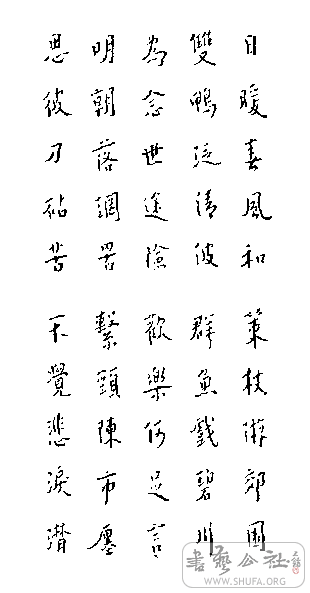 日暖春風和 策杖游郊園
雙鴨泛清波 群魚戲碧川
為念世途險 歡樂何足言
明朝落網罟 繫頭陳市廛
思彼刀砧苦 不覺悲淚潸
書藝公社
WWW.SHUFA.ORG